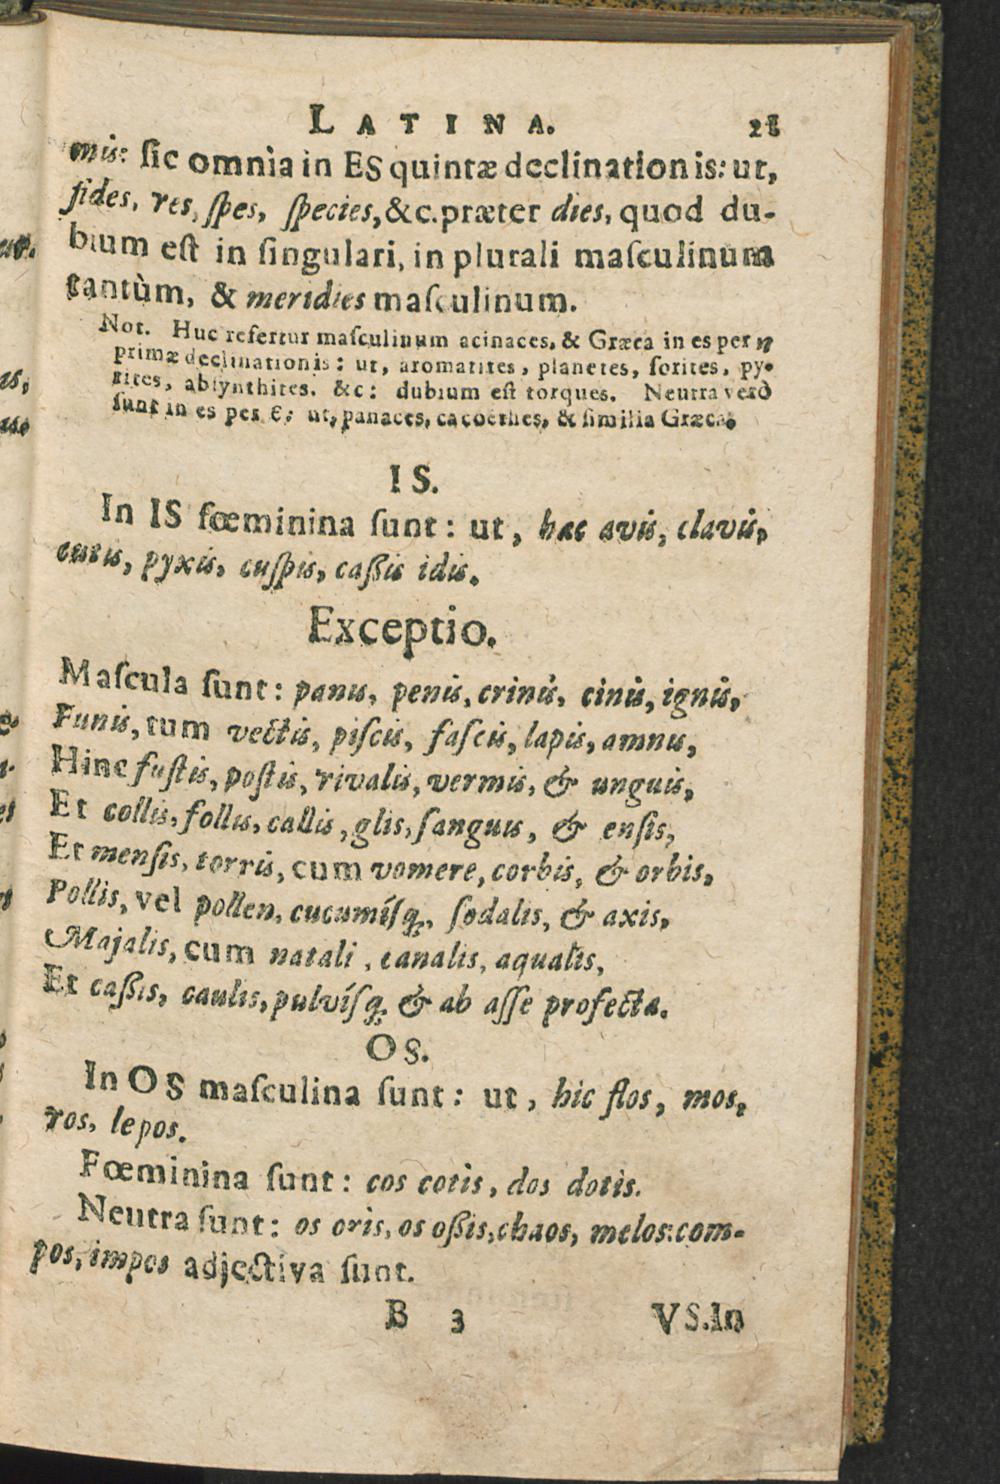 LATINA. 21
mis: ſic omnia in ES quintæ declinationis: ut,
fides, res, ſpes, ſpecies, &c. præter dies, quod du-
bium eſt in ſingulari, in plurali maſculinum
tantùm, & meridies maſculinum.
Not. Huc refertur maſculinum acinaces, & Græca in es per η
primæ declinationis: ut, aromatites, planetes, ſorites, py-
rites, abſynthites. &c: dubium eſt torques. Neutra verò
ſunt in es per ε: ut, panaces, cacoethes, & ſimilia Græca.
IS.
In IS fœminina ſunt: ut, hæc avis, clavis,
cutis, pyxis, cuſpis, caßis idis.
Exceptio.
Maſcula ſunt: panis, penis, crinis, cinis, ignis,
Funis, tum vectis, piſcis, faſcis, lapis, amnis,
Hinc fuſtis, poſtis, rivalis, vermis, & unguis,
Et collis, follis, callis, glis, ſanguis, & enſis,
Et menſis, torris, cum vomere, corbis, & orbis,
Pollis, vel pollen, cucumíſq́, ſodalis, & axis,
Majalis, cum natali, canalis, aqualis,
Et caßis, caulis, pulvíſq́, & ab aſſe profecta.
OS.
In OS maſculina ſunt: ut, hic flos, mos,
ros, lepos.
Fœminina ſunt: cos cotis, dos dotis.
Neutra ſunt: os oris, os oßis, chaos, melos: com-
pos, impos adjectiva ſunt.
B 3 VS. In